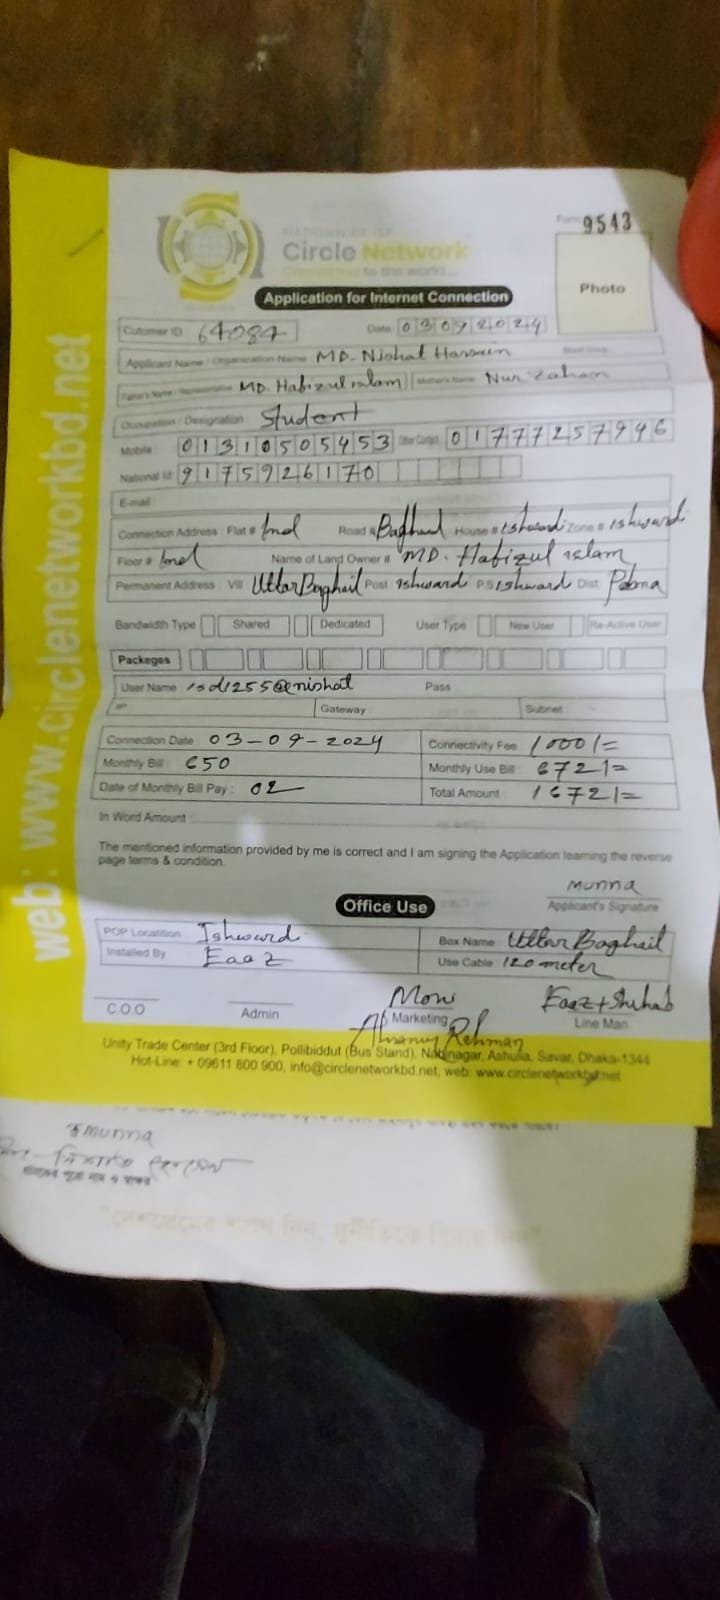 Form 9543
NATIONWIDE ISP
Circle Network
Committed to the world...
Photo
Application for Internet Connection
Cutomer ID 64084 Date 03092024
Applicant Name / Organization Name MD. Nishat Hassein
Father's Name / Representative MD. Habizul islam Mother's Name Nur Zahan
Occupation / Designation Student
Mobile 01310505453 Other Contact 01777257946
National Id 9175926170
E-mail
Connection Address : Flat # Ind Road # Baghail House # Ishwardi Zone # Ishwardi
Floor # Ind Name of Land Owner # MD. Hafizul islam
Permanent Address : Vill Uttar Baghail Post Ishwardi P.S Ishwardi Dist Pabna
Bandwidth Type Shared Dedicated User Type New User Re-Active User
Packeges
User Name isd1255@nishat Pass
IP Gateway Subnet
Connection Date 03-09-2024 Connectivity Fee 1000/=
Monthly Bill : 650 Monthly Use Bill 672/=
Date of Monthly Bill Pay : 02 Total Amount 1672/=
In Word Amount
The mentioned information provided by me is correct and I am signing the Application learning the reverse
page terms & condition.
Munna
Applicant's Signature
Office Use
POP Locatition Ishwardi Box Name Uttar Baghail
Installed By Eaaz Use Cable 120 meter
Eaaz + Shihab
C.O.O Admin Marketing Line Man
Rehman
Unity Trade Center (3rd Floor), Pollibiddut (Bus Stand), Nabinagar, Ashulia, Savar, Dhaka-1344
Hot-Line: + 09611 800 900, info@circlenetworkbd.net, web: www.circlenetworkbd.net
web: www.circlenetworkbd.net
Munna